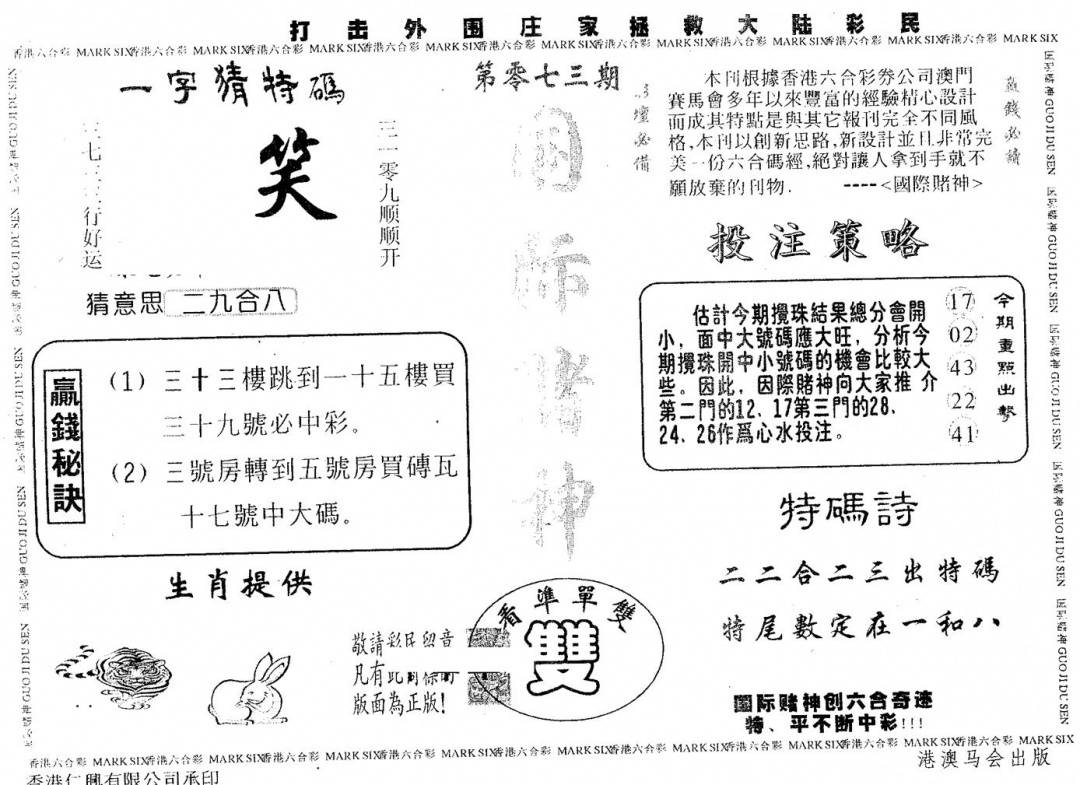 打击外围庄家拯救大陆彩民
香港六合彩 MARK SIX香港六合彩 MARK SIX香港六合彩 MARK SIX香港六合彩 MARK SIX香港六合彩 MARK SIX香港六合彩 MARK SIX香港六合彩 MARK SIX香港六合彩 MARK SIX香港六合彩 MARK SIX
一字猜特碼
笑
三一零九顺顺开
行好运
猜意思 二九合八
第零七三期
國际赌神
壇必備
本刊根據香港六合彩券公司澳門
賽馬會多年以來豐富的經驗精心設計
而成其特點是與其它報刊完全不同風
格,本刊以創新思路,新設計並且非常完
美一份六合碼經,絕對讓人拿到手就不
願放棄的刊物. ----<國際賭神>
贏錢必讀
贏錢秘訣
(1) 三十三樓跳到一十五樓買
三十九號必中彩。
(2) 三號房轉到五號房買磚瓦
十七號中大碼。
投注策略
估計今期攪珠結果總分會開
小，面中大號碼應大旺，分析今
期攪珠開中小號碼的機會比較大
些。因此，因際賭神向大家推介
第二門的12、17第三門的28、
24、26作爲心水投注。
17
02
43
22
41
今期重點出擊
特碼詩
二二合二三出特碼
特尾數定在一和八
生肖提供
敬請彩民留意
凡有此
版面為正版!
看準單雙
雙
国际赌神创六合奇迹
特、平不断中彩!!!
国际赌神 GUO JI DU SEN
香港六合彩 MARK SIX香港六合彩 MARK SIX香港六合彩 MARK SIX香港六合彩 MARK SIX香港六合彩 MARK SIX香港六合彩 MARK SIX香港六合彩 MARK SIX香港六合彩 MARK SIX香港六合彩 MARK SIX
香港仁興有限公司承印
港澳马会出版